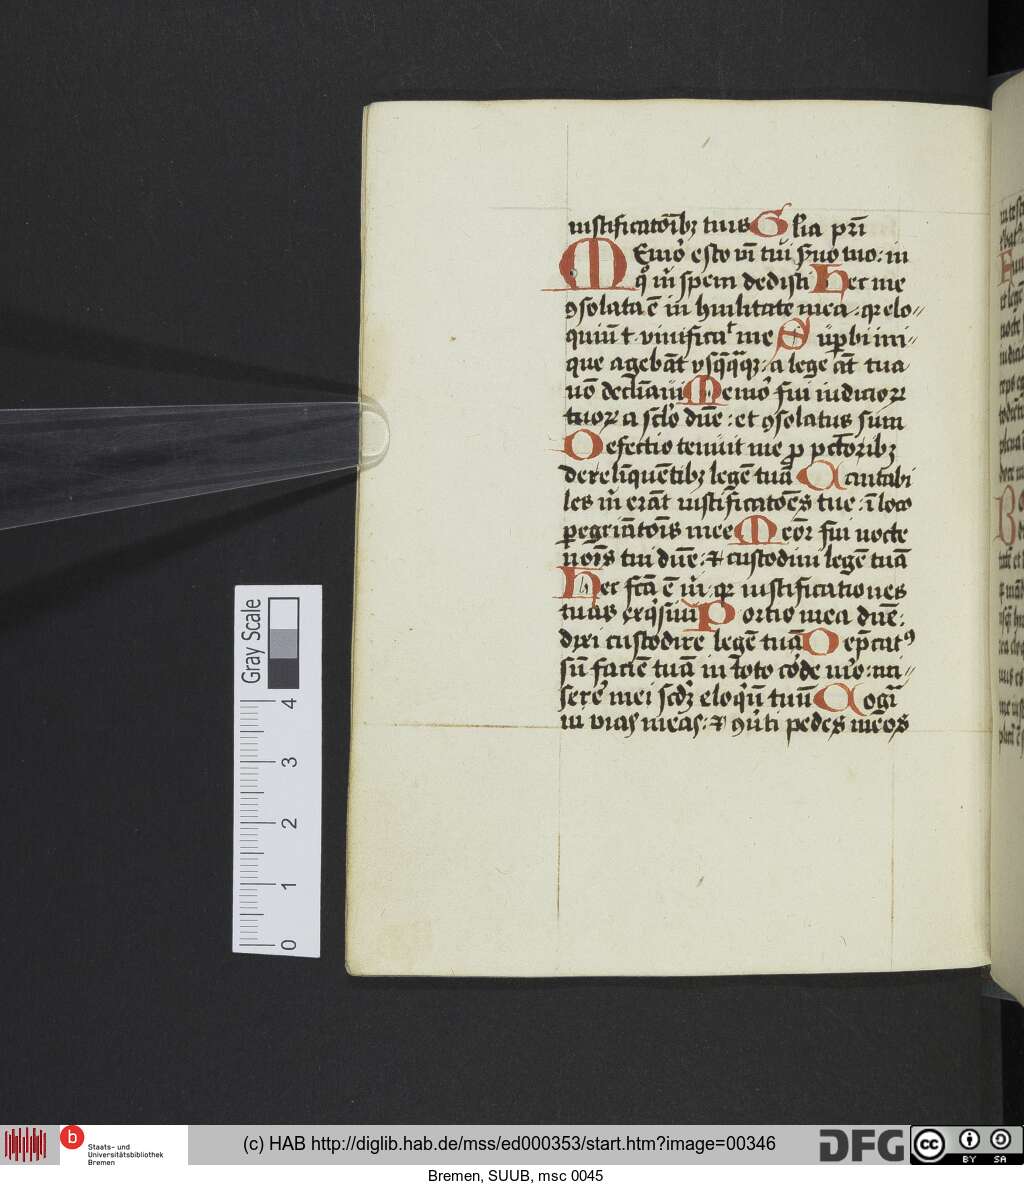 iustificatoĩbꝫ tuis Glia pr̃i
Memor̾ esto ũi tui ẜuo tuo: in
qͦ m̃ spem dedisti Hec me
ꝯsolata ẽ in hũilitate mea. qꝛ elo-
quiũ t. viuificat me Supbi ini-
que agebãt vsq̃q̃qꝫ. a lege ãt tua
nõ declĩaui Memor̾ fui iudicioꝝ
tuoꝝ a sclo dñe: et ꝯsolatus sum
Defectio tenuit me ꝓ pctorĩbꝫ
derelinquẽtibꝫ legẽ tuã Cantabi
les m̃ erãt iustificatõẽs tue: ĩ loco
pegriatõĩs mee Meõr fui nocte
noĩs tui dñe: ⁊ custodiui legẽ tuã
Hec fc̃a ẽ m̃. qꝛ iustificationes
tuas exqͥsiui Portio mea dñe:
dixi custodire legẽ tuã Depcatꝰ
sũ faciẽ tuã in toto corde meo: mi-
serere mei scd̃ꝫ eloqͥũ tuũ Cogi
tui vias meas: ⁊ ꝯuti pedes meos
Gray Scale
4
3
2
1
0
b
Staats- und
Universitätsbibliothek
Bremen
(c) HAB http://diglib.hab.de/mss/ed000353/start.htm?image=00346
DFG
cc
BY SA
Bremen, SUUB, msc 0045